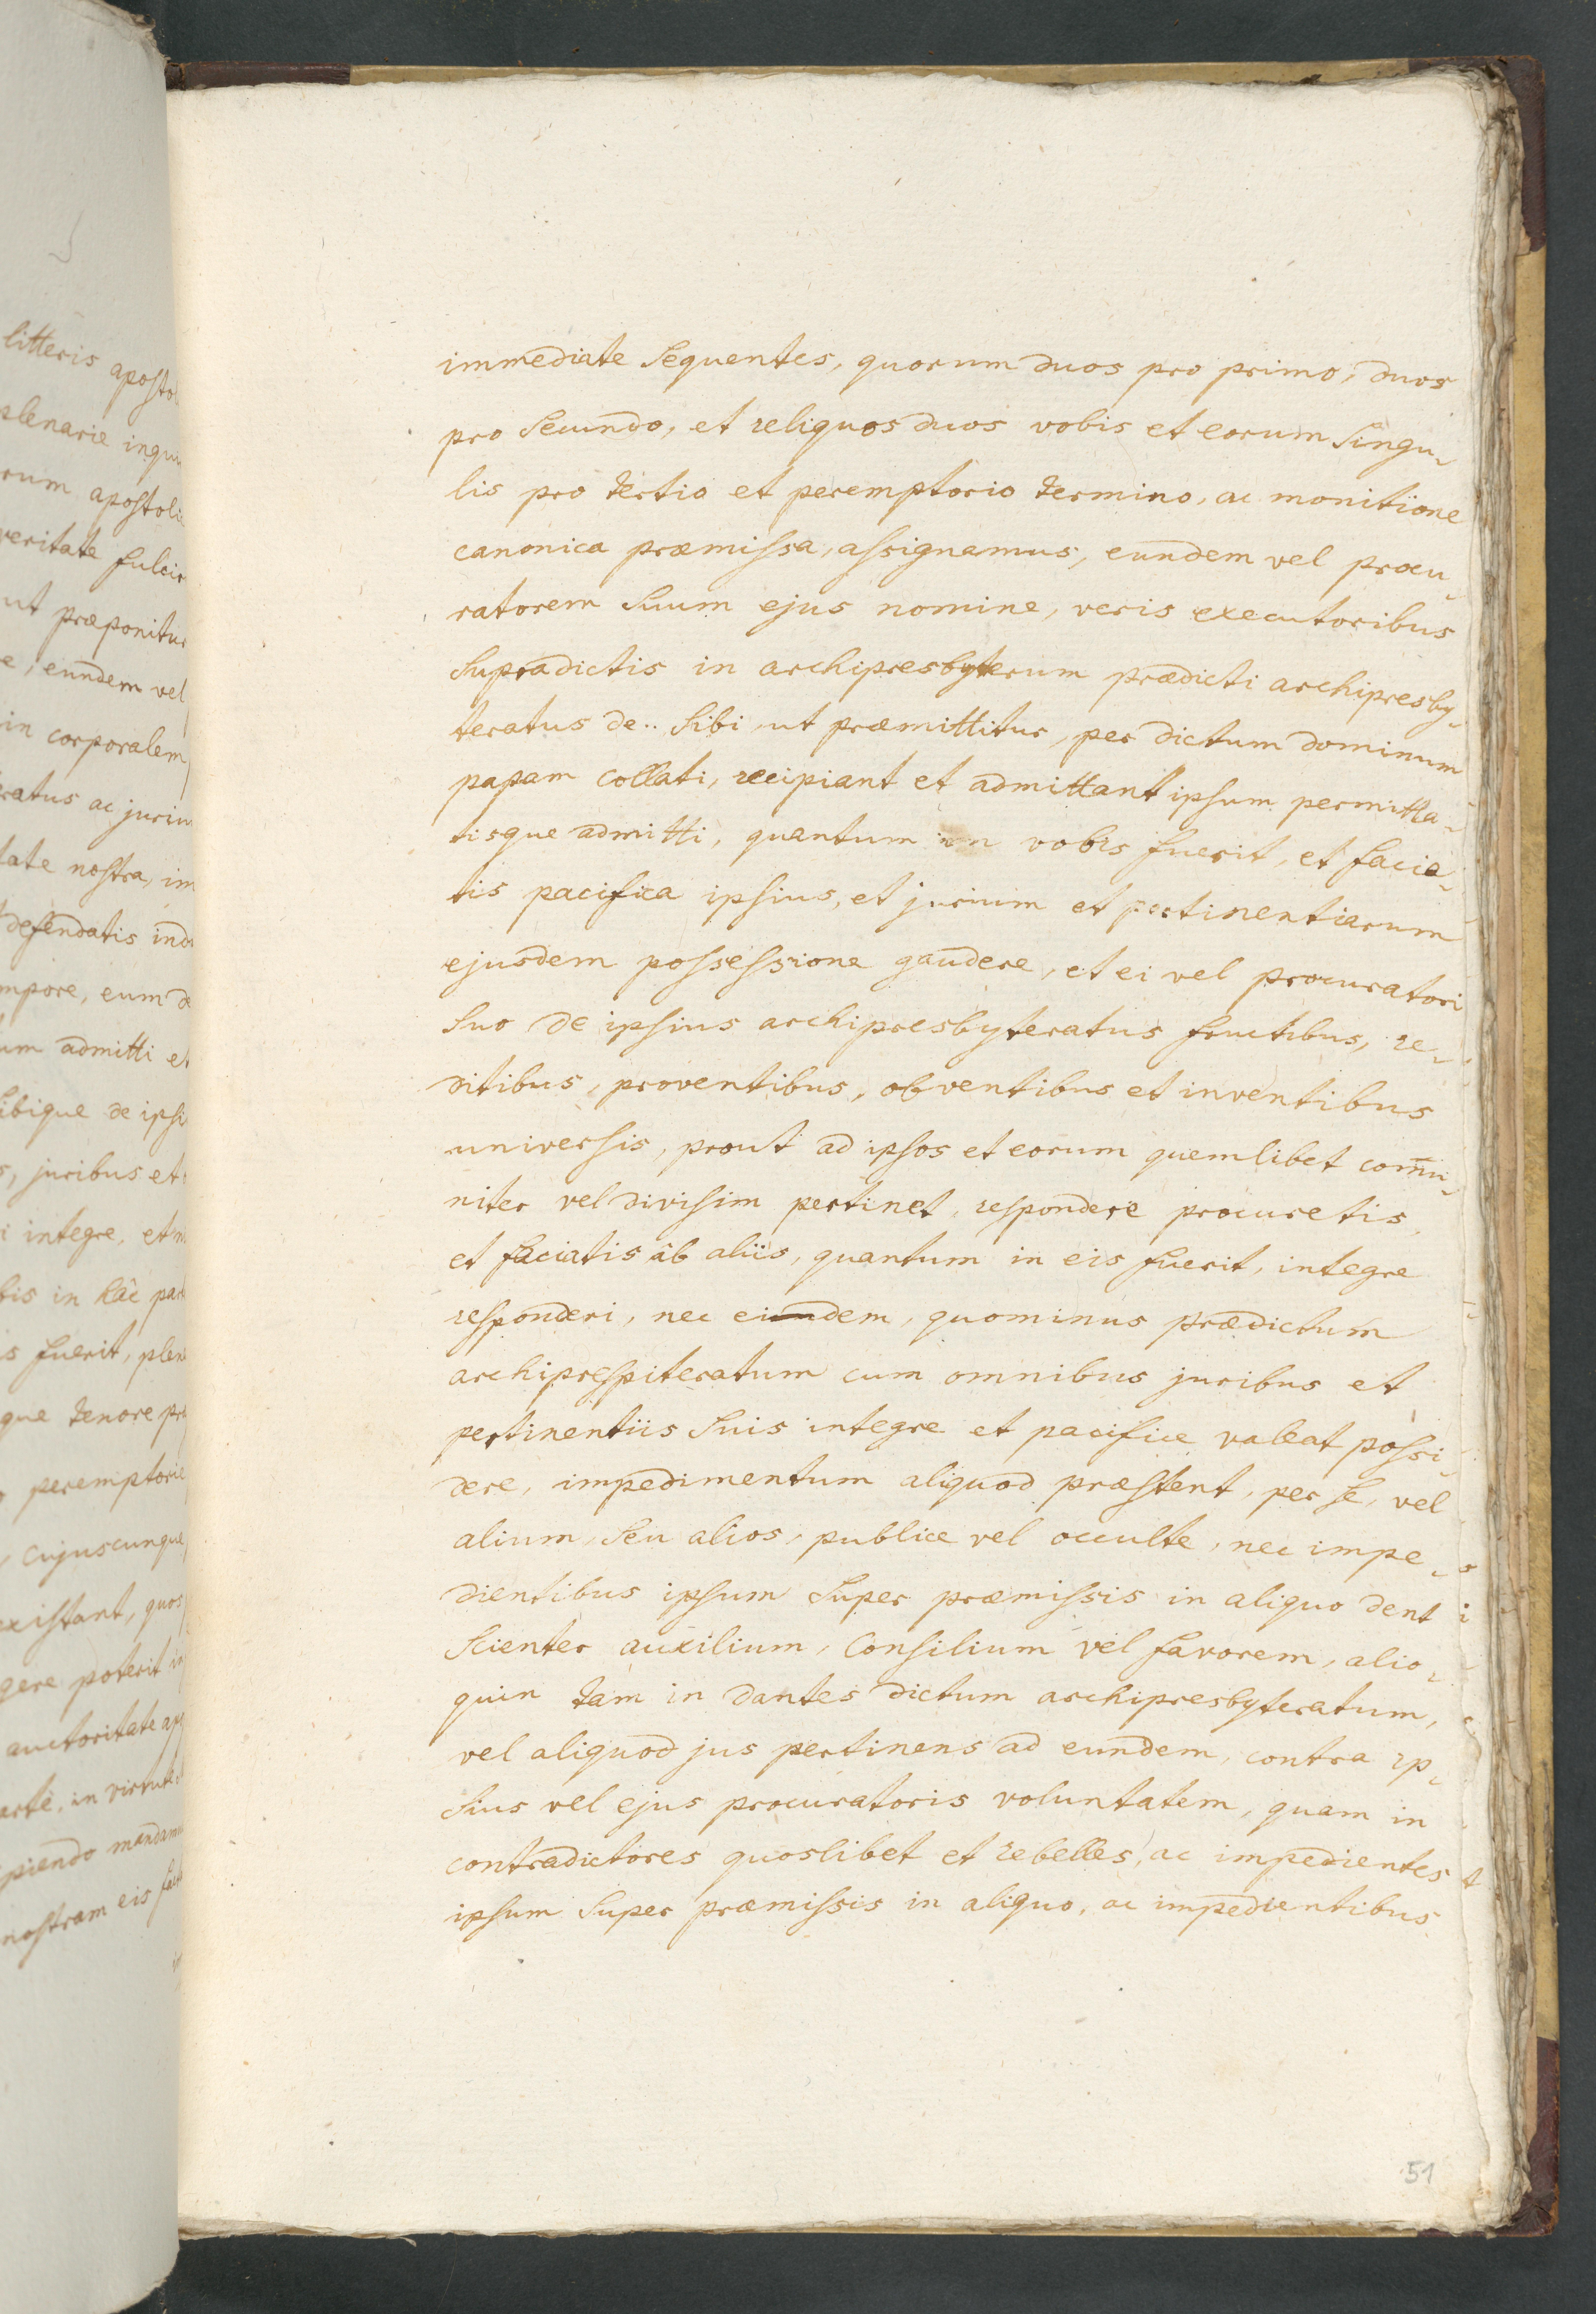 litteris aposto
plenarie inqui
rum apostoli
veritate fulcir
ut præponitur
e, eundem vel
in corporalem
ratus ac juriu
tate nostra, im
defendatis indu
mpore, eum de
um admitti et
ibique de ipsi
s, juribus et
i integre, et
bis in hâc par
s fuerit, plen
que tenore pr
peremptorie
, cujuscunque
existant, quos
gere poterit in
auctoritate ap
arte, in virtute
piendo mandamu
nostram eis
immediate Sequentes, quorum duos pro primo, duos
pro Secundo, et reliquos duos vobis et eorum Singu-
lis pro tertio et peremptorio termino, ac monitione
canonica præmissa, assignamus, eundem vel procu-
ratorem Suum ejus nomine, veris executoribus
Supradictis in archipresbyterum prædicti archipresby-
teratus de.. Sibi, ut præmittitur, per dictum dominum
papam collati, recipiant et admittant ipsum permitta-
tisque admitti, quantum in vobis fuerit, et facia-
tis pacifica ipsius, et jurium et pertinentiarum
ejusdem possessione gaudere, et ei vel procuratori
Suo de ipsius archipresbyteratus fructibus, re-
ditibus, proventibus, obventibus et inventibus
universis, prout ad ipsos et eorum quemlibet com̄u-
niter vel divisim pertinet, respondere procuretis,
et faciatis âb aliis, quantum in eis fuerit, integre
responderi, nec eiundem, quominus prædictum
archiprespiteratum cum omnibus juribus et
pertinentiis Suis integre et pacifice valeat possi-
dere, impedimentum aliquod præstent, per se, vel
alium, Seu alios, publice vel occulte, nec impe-
dientibus ipsum Super præmissis in aliquo dent
Scienter auxilium, Consilium vel favorem, alio-
quin tam in dantes dictum archipresbyteratum,
vel aliquod jus pertinens ad eundem, contra ip-
Sius vel ejus procuratoris voluntatem, quam in
contradictores quoslibet et rebelles, ac impedientes
ipsum Super præmissis in aliquo, ac impedientibus
51